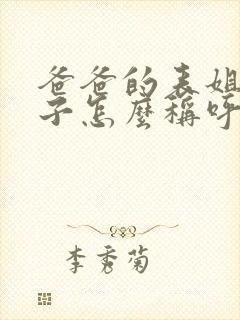 爸爸的表姐
子怎麼稱呼
李秀菊